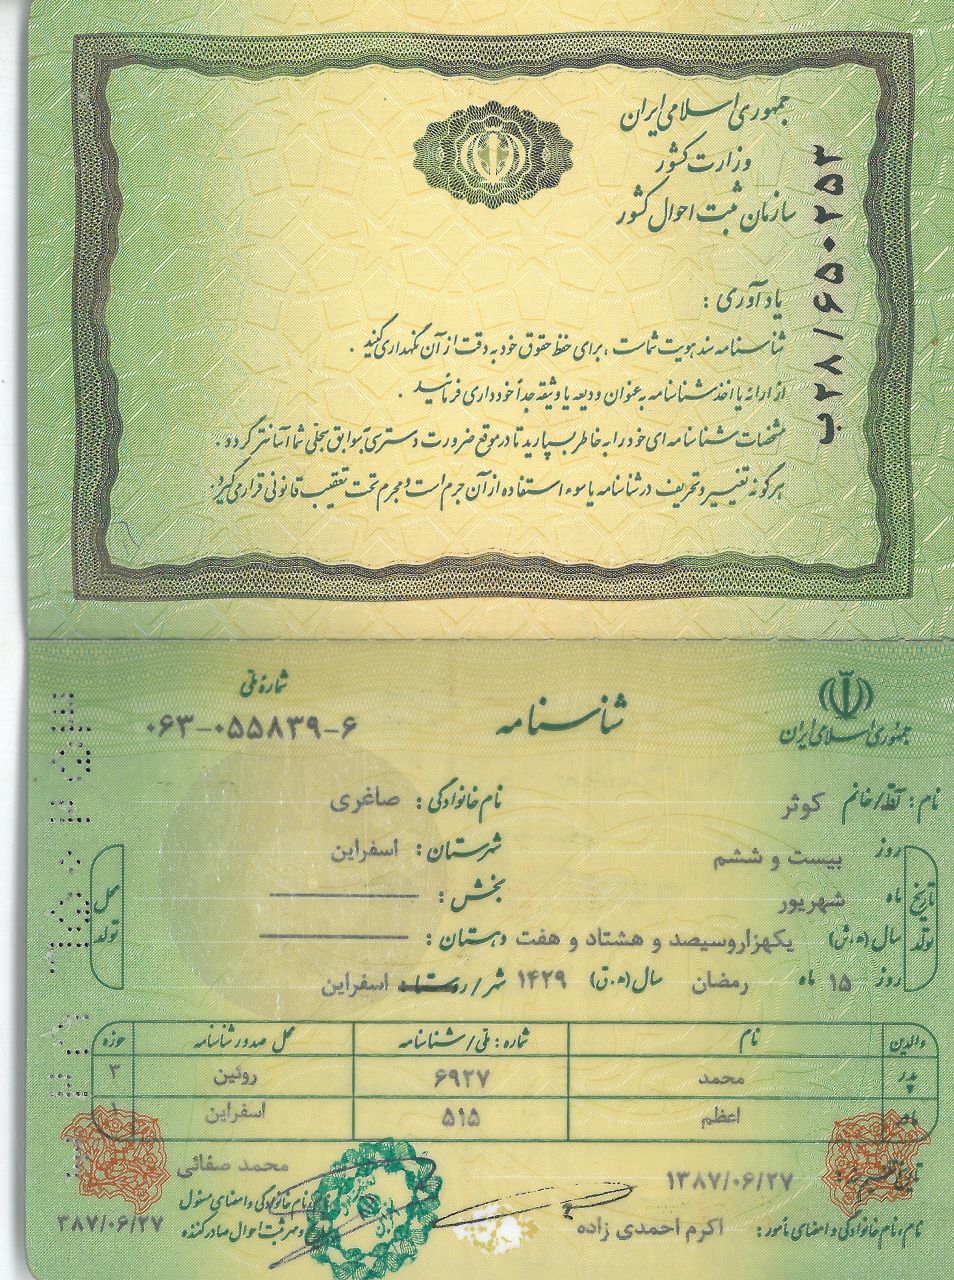 جمهوری اسلامی ایران
وزارت کشور
سازمان ثبت احوال کشور
ب۲۸/۶۵۰۲۵۳
یادآوری :
شناسنامه سند هویت شماست ، برای حفظ حقوق خود به دقت از آن نگهداری کنید .
از ارائه یا اخذ شناسنامه به عنوان ودیعه یا وثیقه جداً خودداری فرمائید .
مشخصات شناسنامه ای خود را به خاطر بسپارید تا در موقع ضرورت دسترسی به سوابق سجلی شما آسانتر گردد .
هرگونه تغییر و تحریف در شناسنامه یا سوء استفاده از آن جرم است و مجرم تحت تعقیب قانونی قرار می گیرد.
جمهوری اسلامی ایران
شناسنامه
شماره ملی
۰۶۳-۰۵۵۸۳۹-۶
نام : آقا/خانم کوثر نام خانوادگی : صاغری
تاریخ تولد
روز بیست و ششم
ماه شهریور
سال (ه.ش) یکهزاروسیصد و هشتاد و هفت
روز ۱۵ ماه رمضان سال (ه.ق) ۱۴۲۹
محل تولد
شهرستان : اسفراین
بخش :
دهستان :
شهر/روستا : اسفراین
والدین نام شماره : ملی/شناسنامه محل صدور شناسنامه حوزه
پدر محمد ۶۹۲۷ روئین ۳
مادر اعظم ۵۱۵ اسفراین ۱
۱۳۸۷/۰۶/۲۷
نام، نام خانوادگی و امضای مأمور : اکرم احمدی زاده
محمد صفائی
نام، نام خانوادگی و امضای مسئول
و مهر ثبت احوال صادرکننده
۳۸۷/۰۶/۲۷